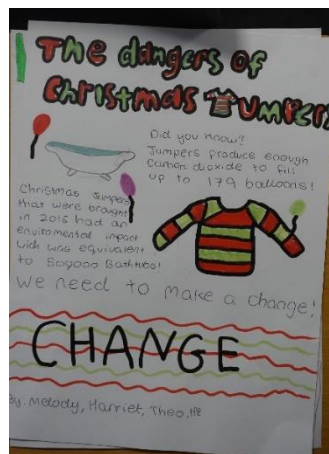 The dangers of
Christmas Jumpers
Did you know?
Jumpers produce enough
carbon dioxide to fill
up to 179 balloons!
Christmas Jumpers
that were brought
in 2018 had an
enviromental impact
wich was equivalent
to Bathtubs!
We need to make a change!
CHANGE
By. Melody, Harriet, Theo.